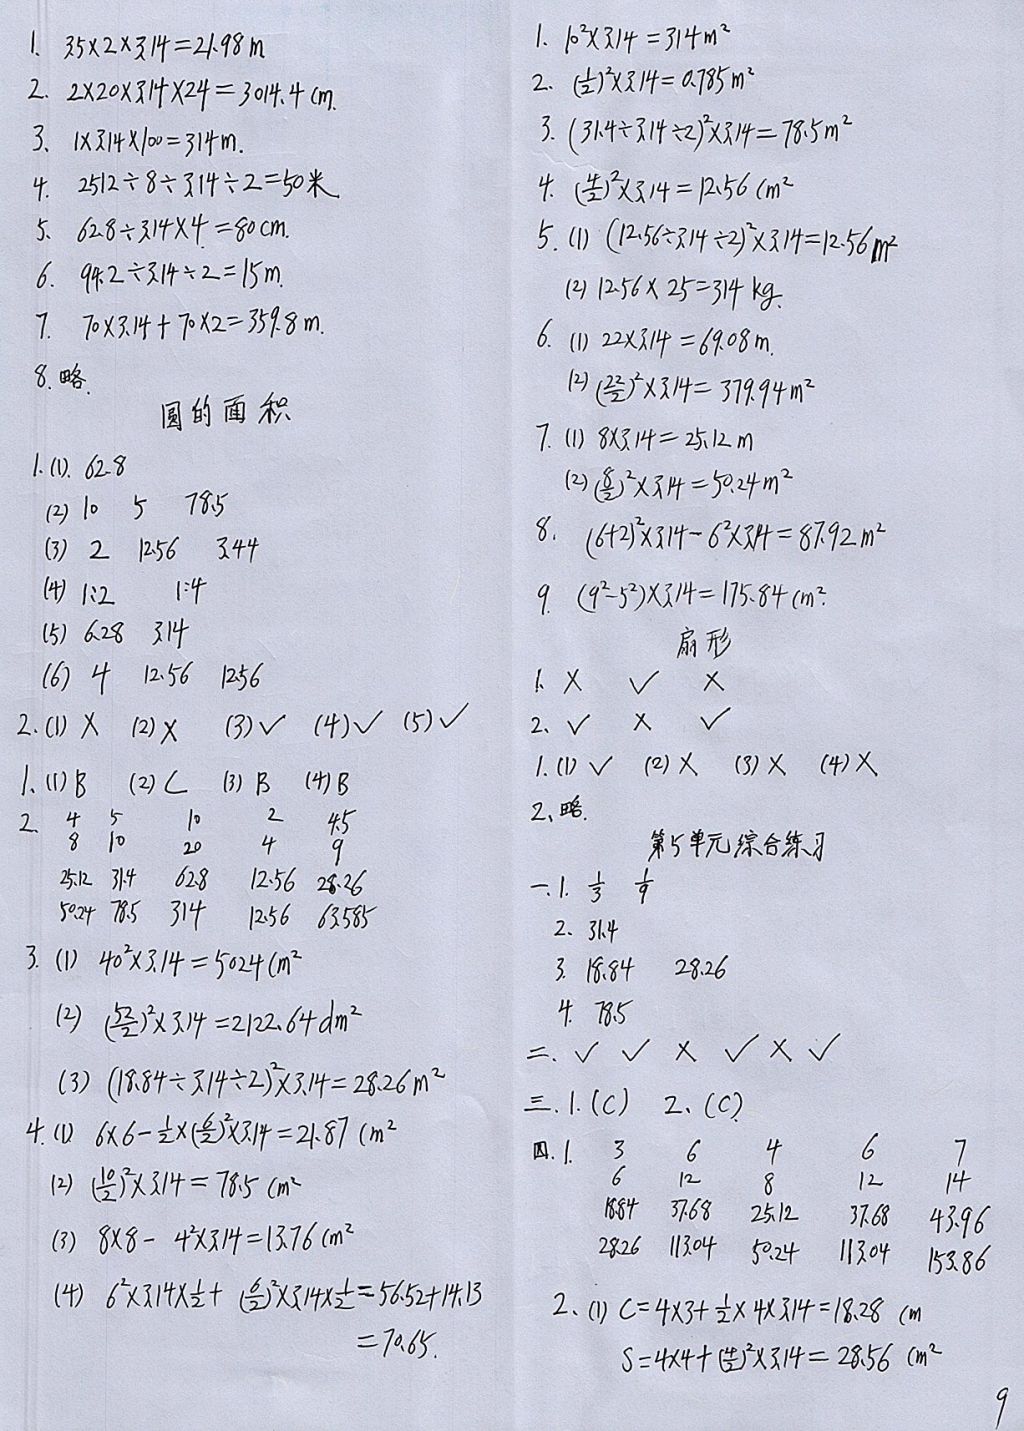 1. 3.5×2×3.14=21.98m
2. 2×20×3.14×24=3014.4cm.
3. 1×3.14×100=314m.
4. 2512÷8÷3.14÷2=50米
5. 62.8÷3.14×4=80cm.
6. 94.2÷3.14÷2=15m.
7. 70×3.14+70×2=359.8m.
8. 略.
圆的面积
1. (1). 62.8
(2) 10 5 78.5
(3) 2 12.56 3.44
(4) 1:2 1:4
(5) 6.28 3.14
(6) 4 12.56 12.56
2. (1) × (2) × (3) ✓ (4) ✓ (5) ✓
1. (1) B (2) C (3) B (4) B
2. 4 5 10 2 4.5
8 10 20 4 9
25.12 31.4 62.8 12.56 28.26
50.24 78.5 314 12.56 63.585
3. (1) 40²×3.14=5024cm²
(2) (52/2)²×3.14=2122.64dm²
(3) (18.84÷3.14÷2)²×3.14=28.26m²
4. (1) 6×6-1/2×(6/2)²×3.14=21.87cm²
(2) (10/2)²×3.14=78.5cm²
(3) 8×8-4²×3.14=13.76cm²
(4) 6²×3.14×1/2+(6/2)²×3.14×1/2=56.52+14.13
=70.65.
1. 10²×3.14=314m²
2. (1/2)²×3.14=0.785m²
3. (31.4÷3.14÷2)²×3.14=78.5m²
4. (4/2)²×3.14=12.56cm²
5. (1) (12.56÷3.14÷2)²×3.14=12.56m²
(2) 12.56×25=314kg.
6. (1) 22×3.14=69.08m.
(2) (22/2)²×3.14=379.94m²
7. (1) 8×3.14=25.12m
(2) (8/2)²×3.14=50.24m²
8. (6+2)²×3.14-6²×3.14=87.92m²
9. (9²-5²)×3.14=175.84cm².
扇形
1. × ✓ ×
2. ✓ × ✓
1. (1) ✓ (2) × (3) × (4) ×
2. 略.
第5单元综合练习
一. 1. 1/3 1/9
2. 31.4
3. 18.84 28.26
4. 78.5
二. ✓ ✓ × ✓ × ✓
三. 1. (C) 2. (C)
四. 1. 3 6 4 6 7
6 12 8 12 14
18.84 37.68 25.12 37.68 43.96
28.26 113.04 50.24 113.04 153.86
2. (1) C=4×3+1/2×4×3.14=18.28 cm
S=4×4+(4/2)²×3.14=28.56 cm²
9